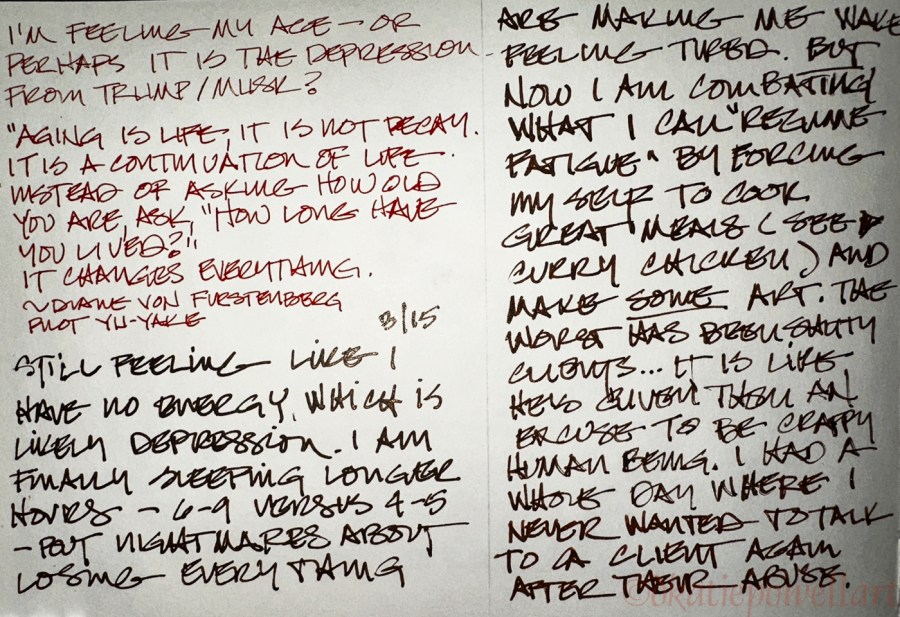 I'M FEELING MY AGE — OR
PERHAPS IT IS THE DEPRESSION
FROM TRUMP/MUSK?
"AGING IS LIFE, IT IS NOT DECAY.
IT IS A CONTINUATION OF LIFE.
INSTEAD OF ASKING HOW OLD
YOU ARE, ASK, "HOW LONG HAVE
YOU LIVED?"
IT CHANGES EVERYTHING.
~DIANE VON FURSTENBERG
PILOT YU-YAKE
3/15
STILL FEELING LIKE I
HAVE NO ENERGY, WHICH IS
LIKELY DEPRESSION. I AM
FINALLY SLEEPING LONGER
HOURS — 6-9 VERSUS 4-5
— BUT NIGHTMARES ABOUT
LOSING EVERYTHING
ARE MAKING ME WAKE
FEELING TIRED. BUT
NOW I AM COMBATING
WHAT I CALL "REGIME
FATIGUE" BY FORCING
MY SELF TO COOK
GREAT MEALS (SEE
CURRY CHICKEN) AND
MAKE SOME ART. THE
WORST HAS BEEN SHITTY
CLIENTS... IT IS LIKE
HE'S GIVEN THEM AN
EXCUSE TO BE CRAPPY
HUMAN BEING. I HAD A
WHOLE DAY WHERE I
NEVER WANTED TO TALK
TO A CLIENT AGAIN
AFTER THEIR ABUSE.
©okatiepowellart